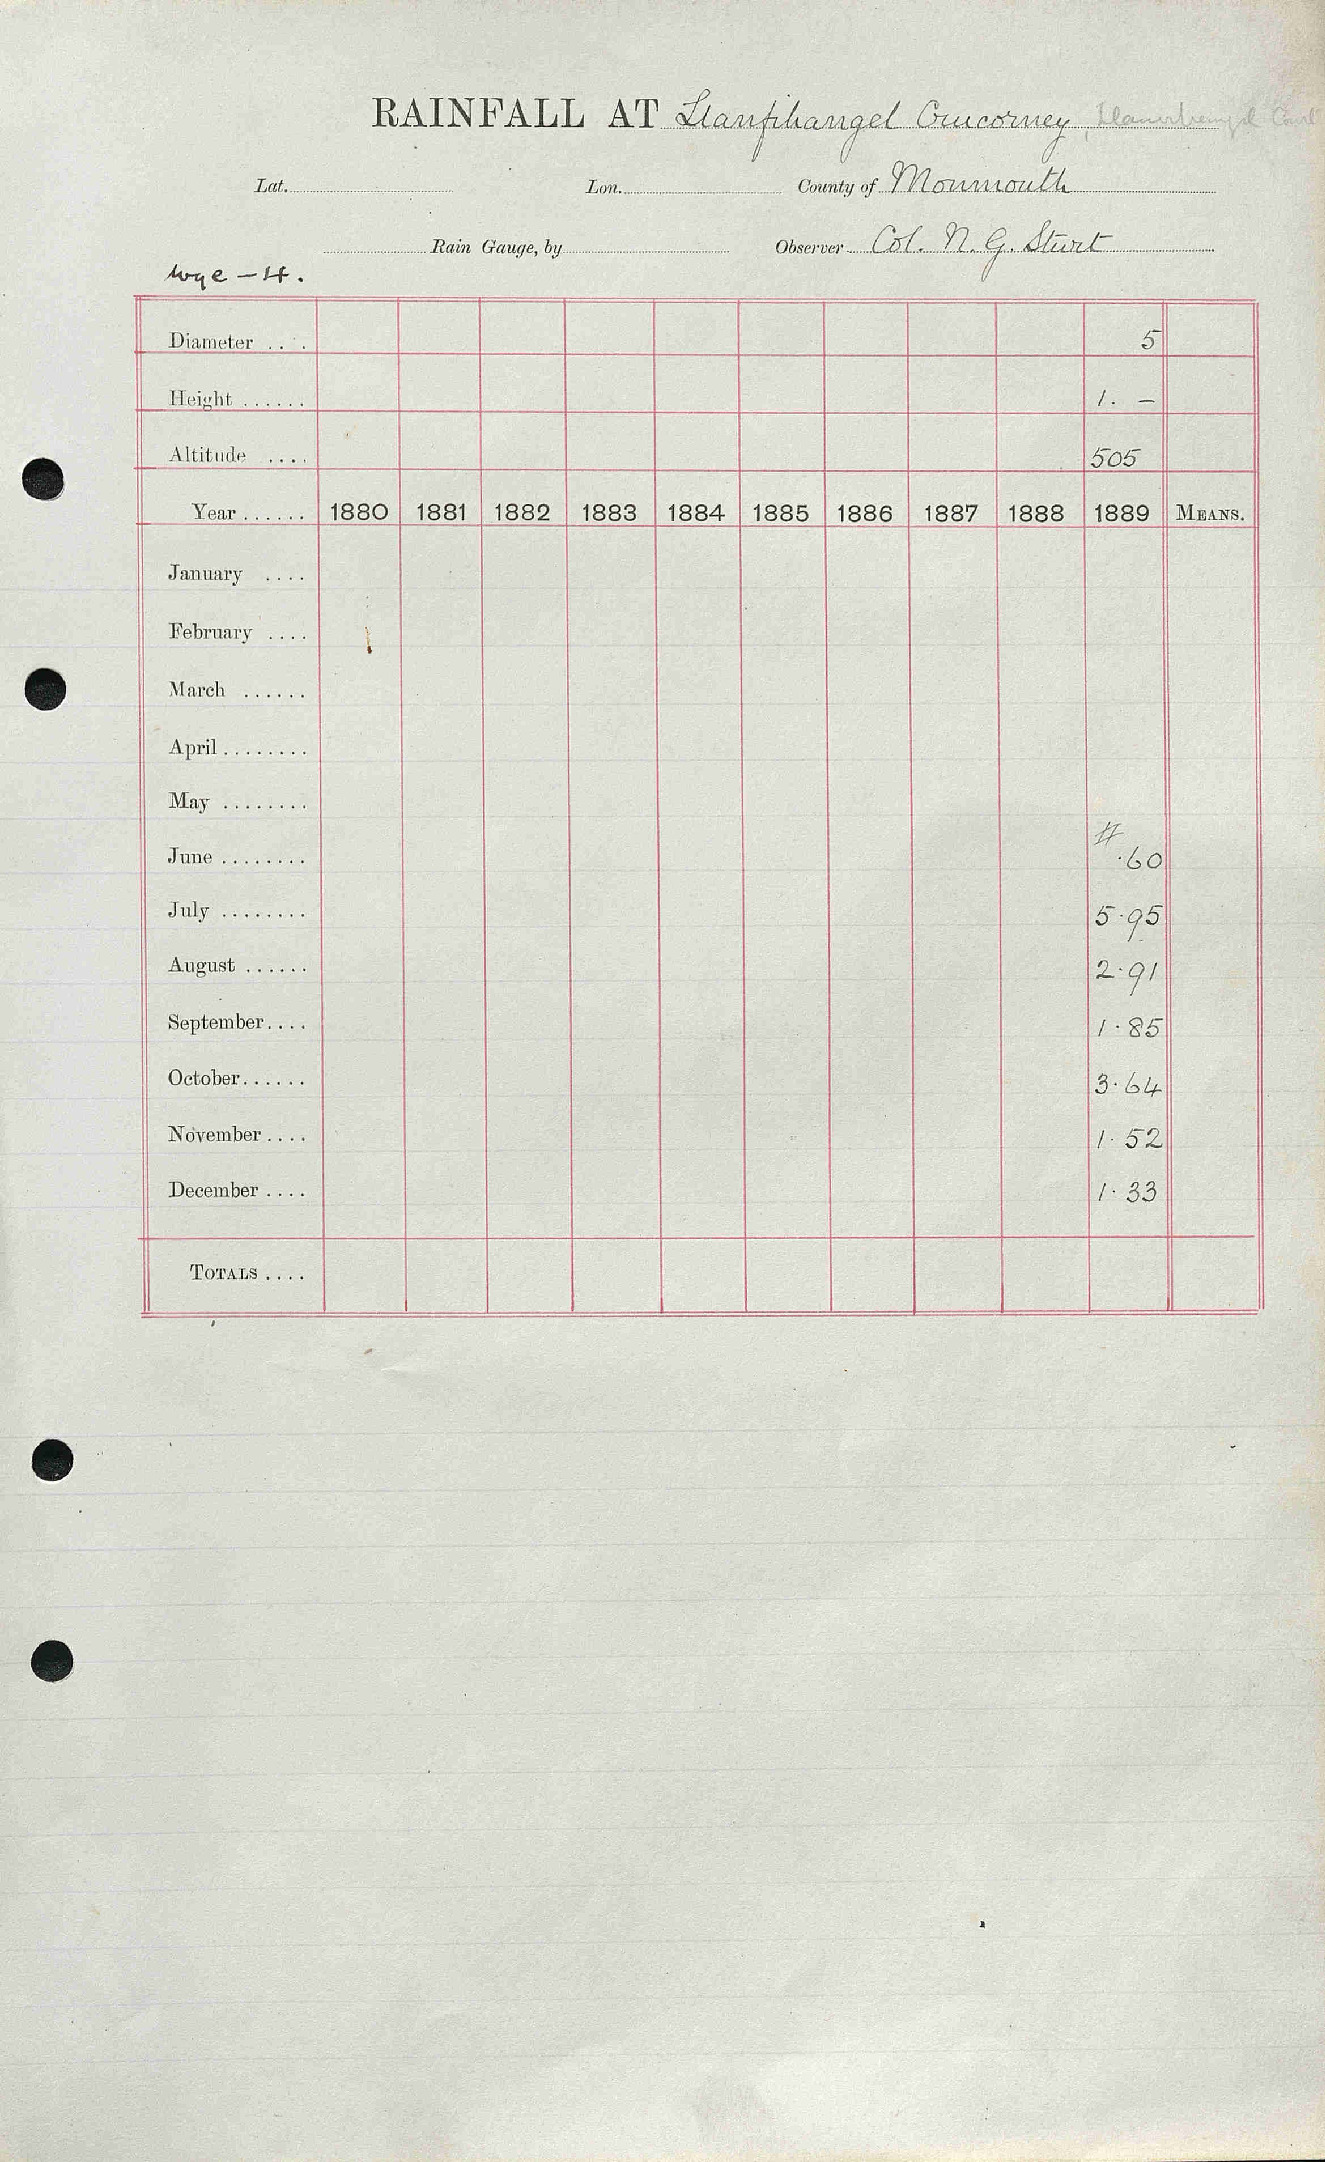 RAINFALL AT Llanfihangel Crucorney, Court
Lat. Lon. County of Monmouth
Rain Gauge, by Observer Col. N. G. Sturt
Wye - 4.
Diameter .... 5
Height ...... 1. -
Altitude .... 505
Year ...... 1880 1881 1882 1883 1884 1885 1886 1887 1888 1889 MEANS.
January ....
February ....
March ......
April ........
May ........
#
June ........ ·60
July ........ 5·95
August ...... 2·91
September.... 1·85
October...... 3·64
November.... 1·52
December.... 1·33
TOTALS ....